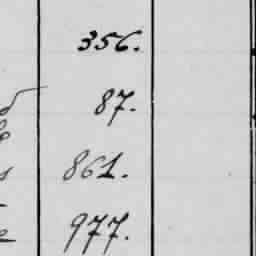 356.
87.
861.
977.